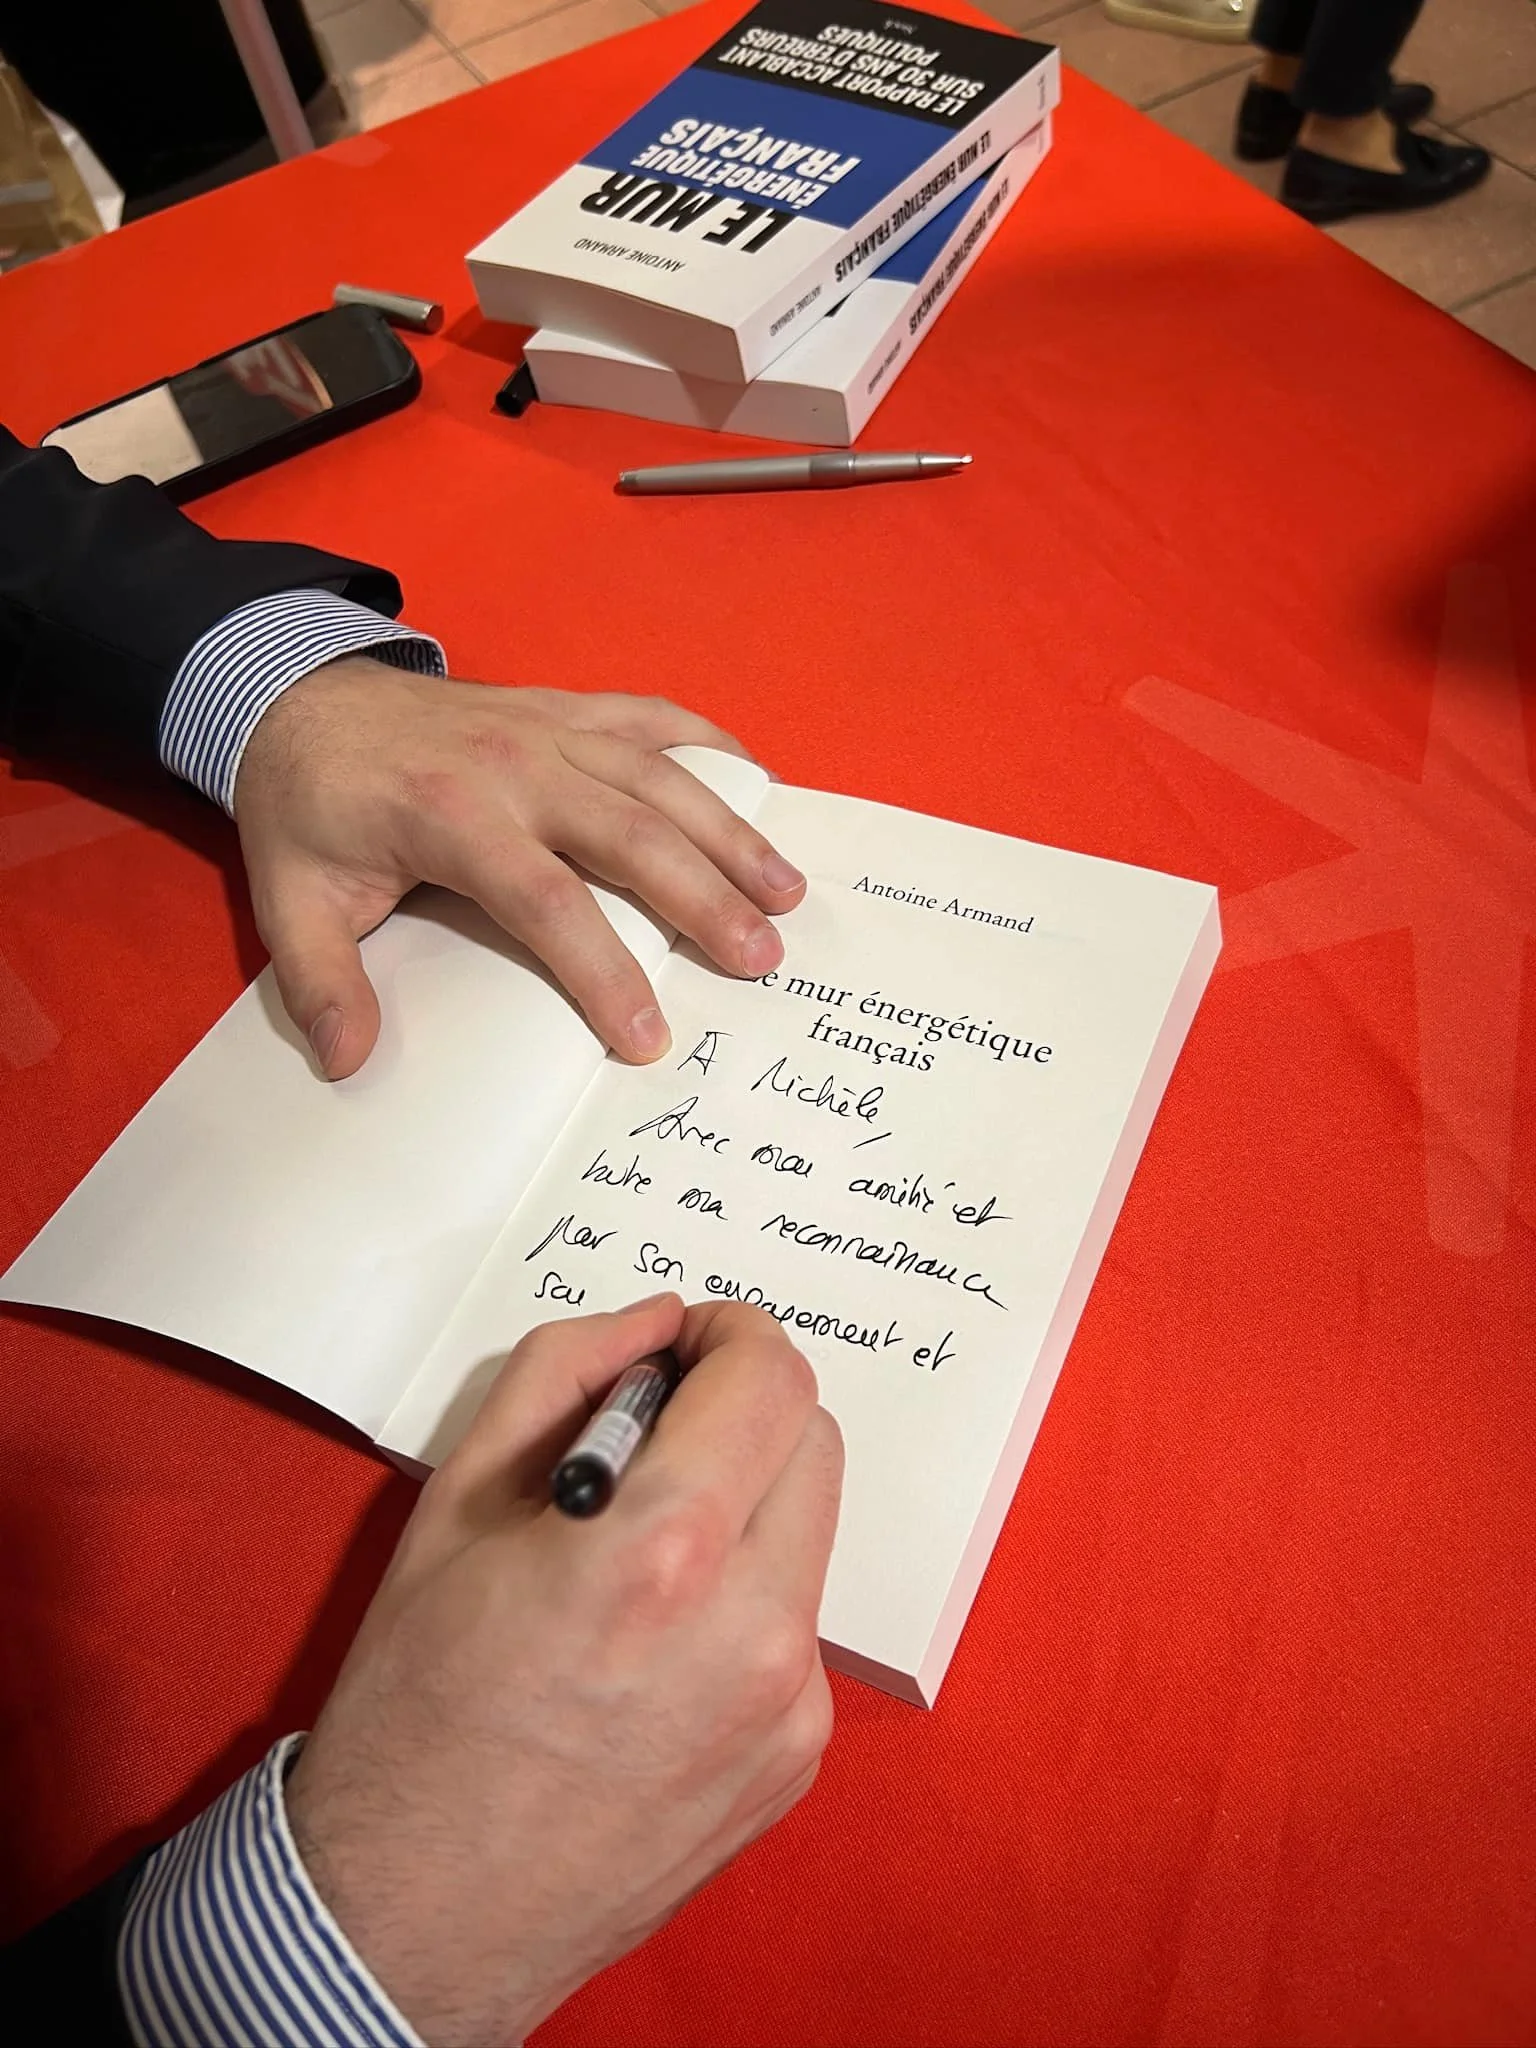 ANTOINE ARMAND
LE MUR
ÉNERGÉTIQUE
FRANÇAIS
LE RAPPORT ACCABLANT
SUR 30 ANS D'ERREURS
POLITIQUES
Stock
ANTOINE ARMAND LE MUR ÉNERGÉTIQUE FRANÇAIS
LE MUR ÉNERGÉTIQUE FRANÇAIS
Antoine Armand
e mur énergétique
français
À Michèle,
Avec mon amitié et
toute ma reconnaissance
par son engagement et
son